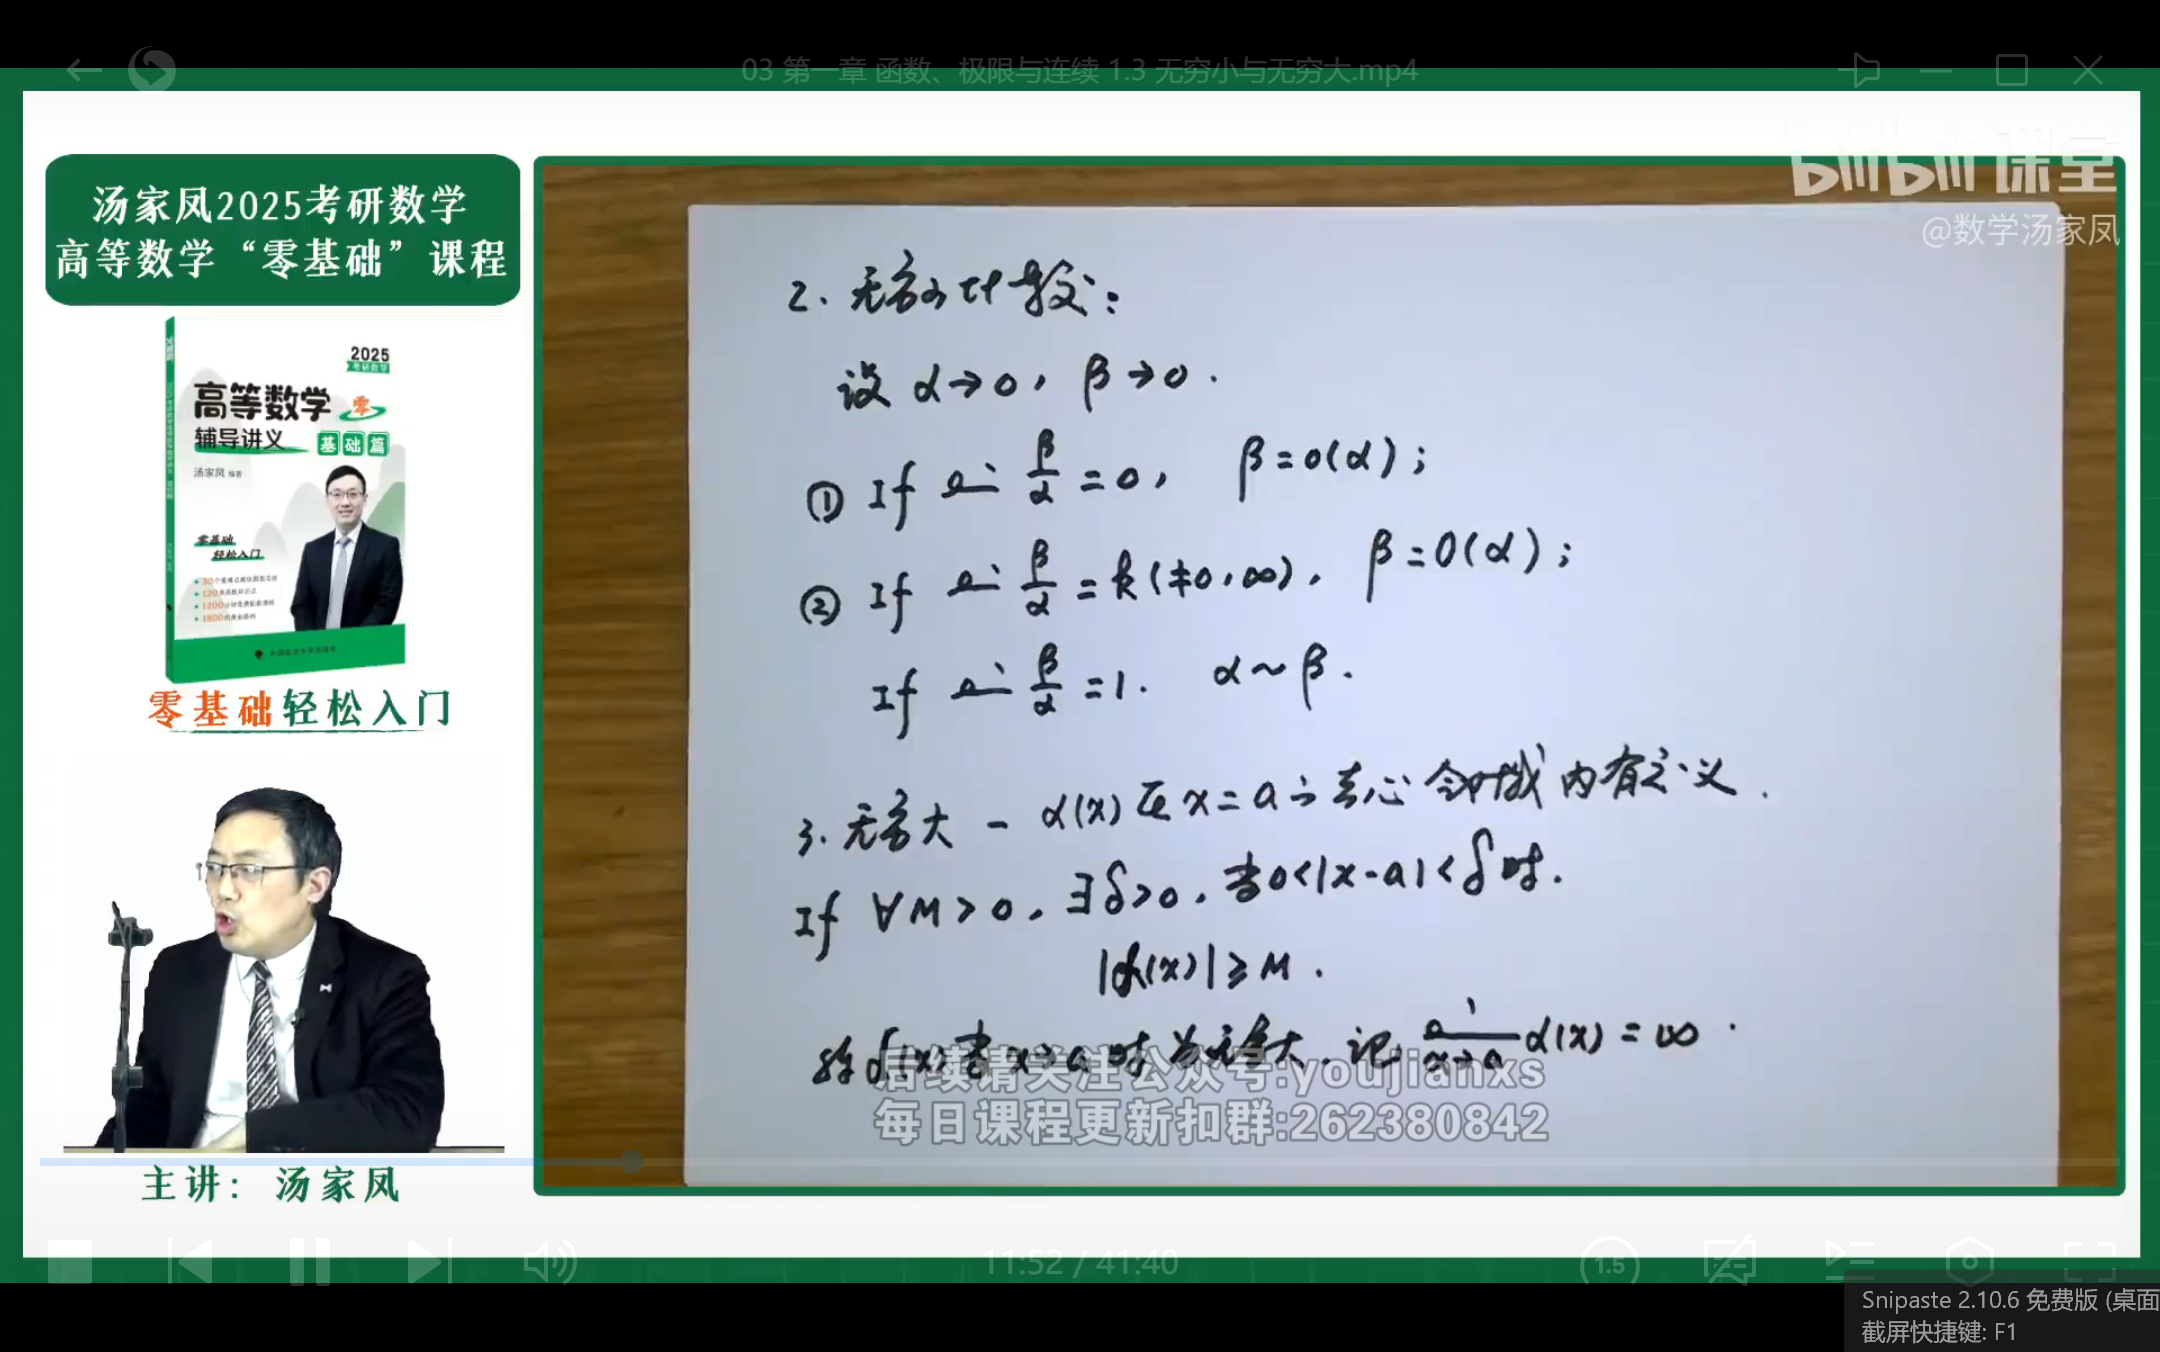 03 第一章 函数、极限与连续 1.3 无穷小与无穷大.mp4
bilibili 课堂
@数学汤家凤
汤家凤2025考研数学
高等数学“零基础”课程
2025
考研数学
高等数学 零
辅导讲义 基础篇
汤家凤 编著
零基础
轻松入门
零基础轻松入门
主讲：汤家凤
2. 无穷小比较：
设 α→0, β→0.
① If lim β/α = 0, β = o(α);
② If lim β/α = k(≠0,∞), β = O(α);
If lim β/α = 1. α~β.
3. 无穷大 - α(x)在x=a之去心邻域内有定义.
If ∀M>0, ∃δ>0, 当0<|x-a|<δ时.
|α(x)|≥M.
称α(x)当x→a时为无穷大. 记 lim x→a α(x) = ∞.
后续请关注公众号:youjianxs
每日课程更新扣群:262380842
11:52 / 41:40
1.5
Snipaste 2.10.6 免费版 (桌面
截屏快捷键: F1